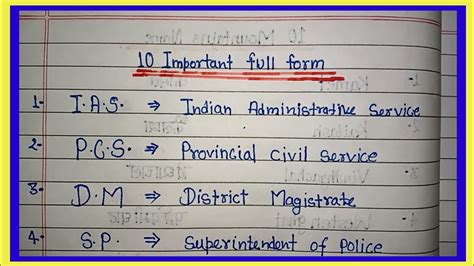 10 Important full form
1- I.A.S. ⇒ Indian Administrative Service
2- P.C.S. ⇒ Provincial Civil Service
3- D.M ⇒ District Magistrate
4- S.P. ⇒ Superintendent of Police